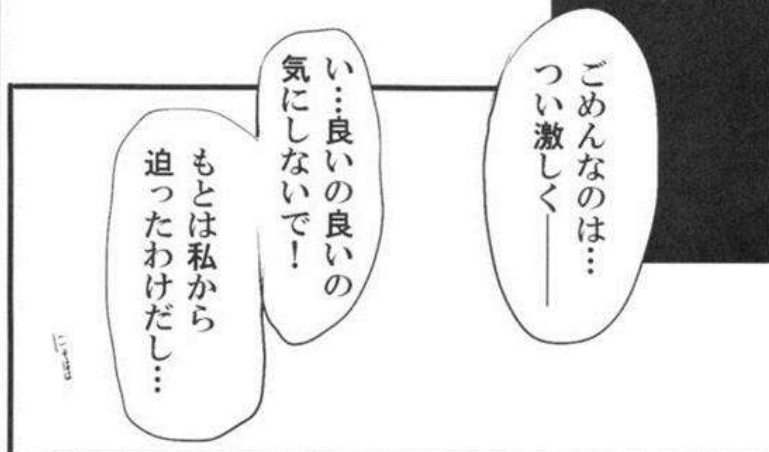 ごめんなのは…
つい激しく――
い…良いの良いの
気にしないで！
もとは私から
迫ったわけだし…